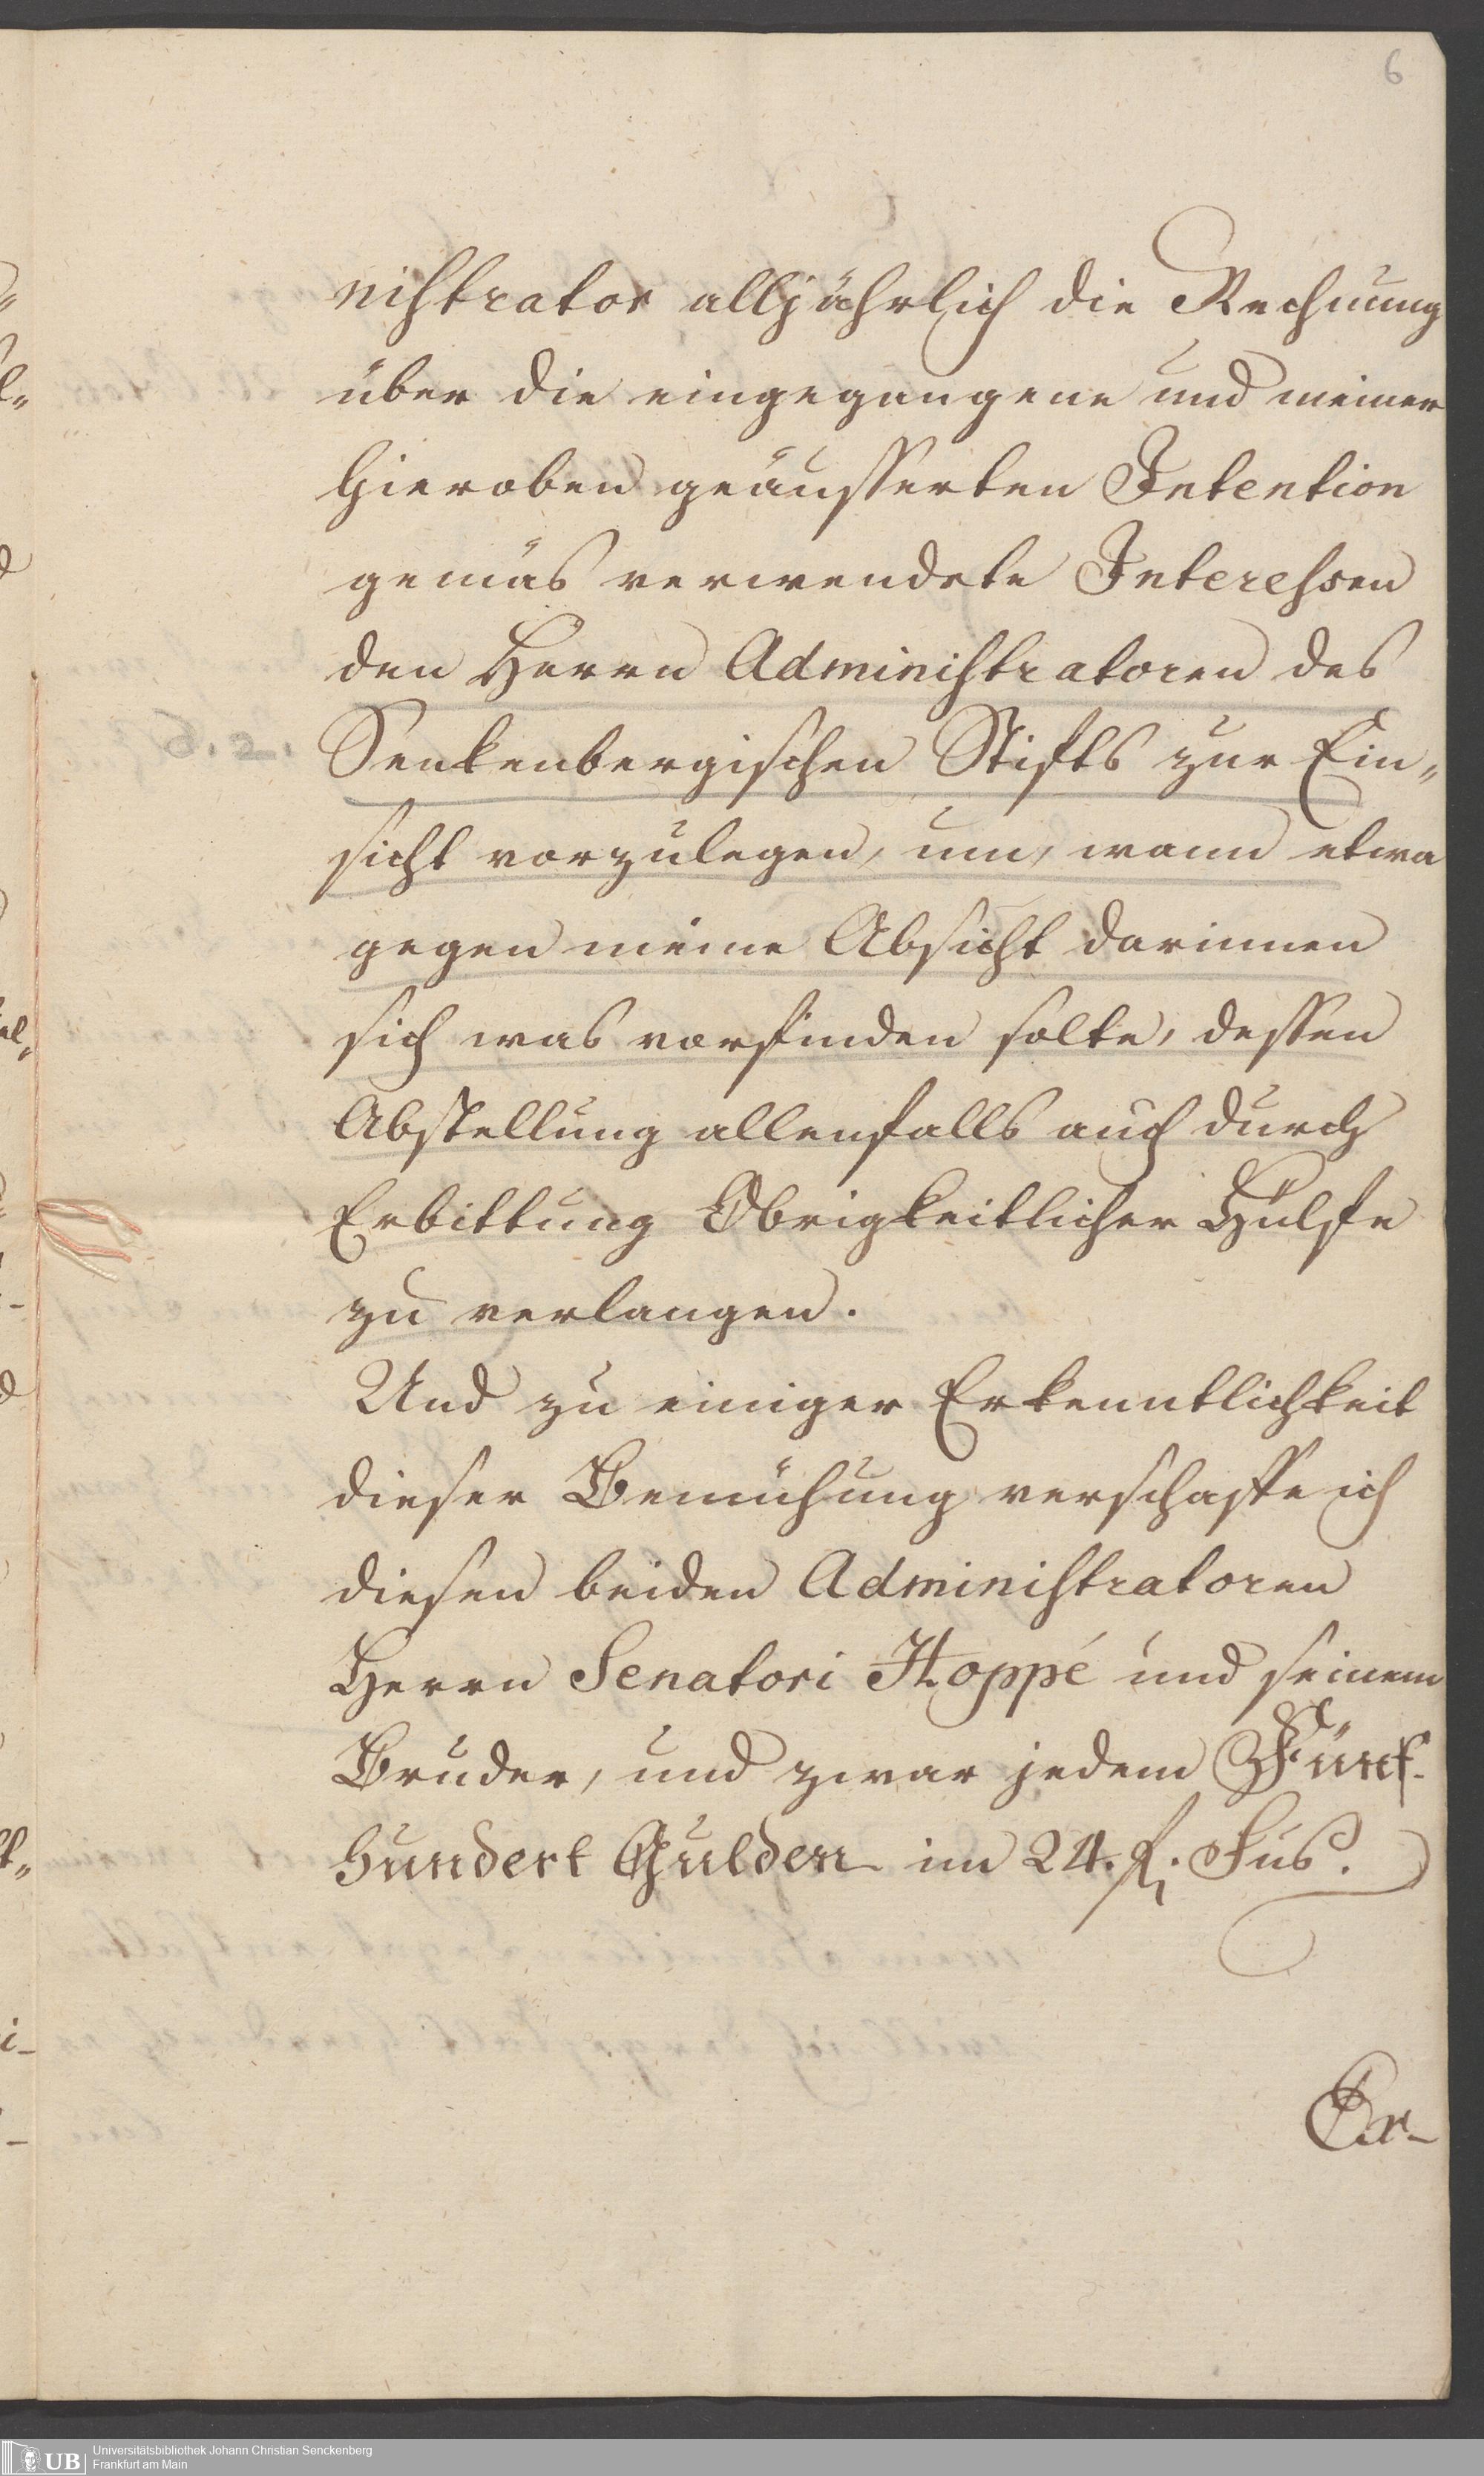 6
nistrator alljährlich die Rechnung
über die eingegangene und meiner
hieroben geäusserten Intention
gemäs verwendete Interessen
den Herrn Administratoren des
Senkenbergischen Stifts zur Ein„
sicht vorzulegen, um, wann etwa
gegen meine Absicht darinnen
sich was vorfinden solte, dessen
Abstellung allenfalls auch durch
Erbittung Obrigkeitlicher Hülfe
zu verlangen.
Und zu einiger Erkenntlichkeit
dieser Bemühung verschaffe ich
diesen beiden Administratoren
Herrn Senatori Hoppé und seinem
Bruder, und zwar jedem Fünf-
hundert Gulden im 24. fl. Fus.
Universitätsbibliothek Johann Christian Senckenberg
Frankfurt am Main
UB